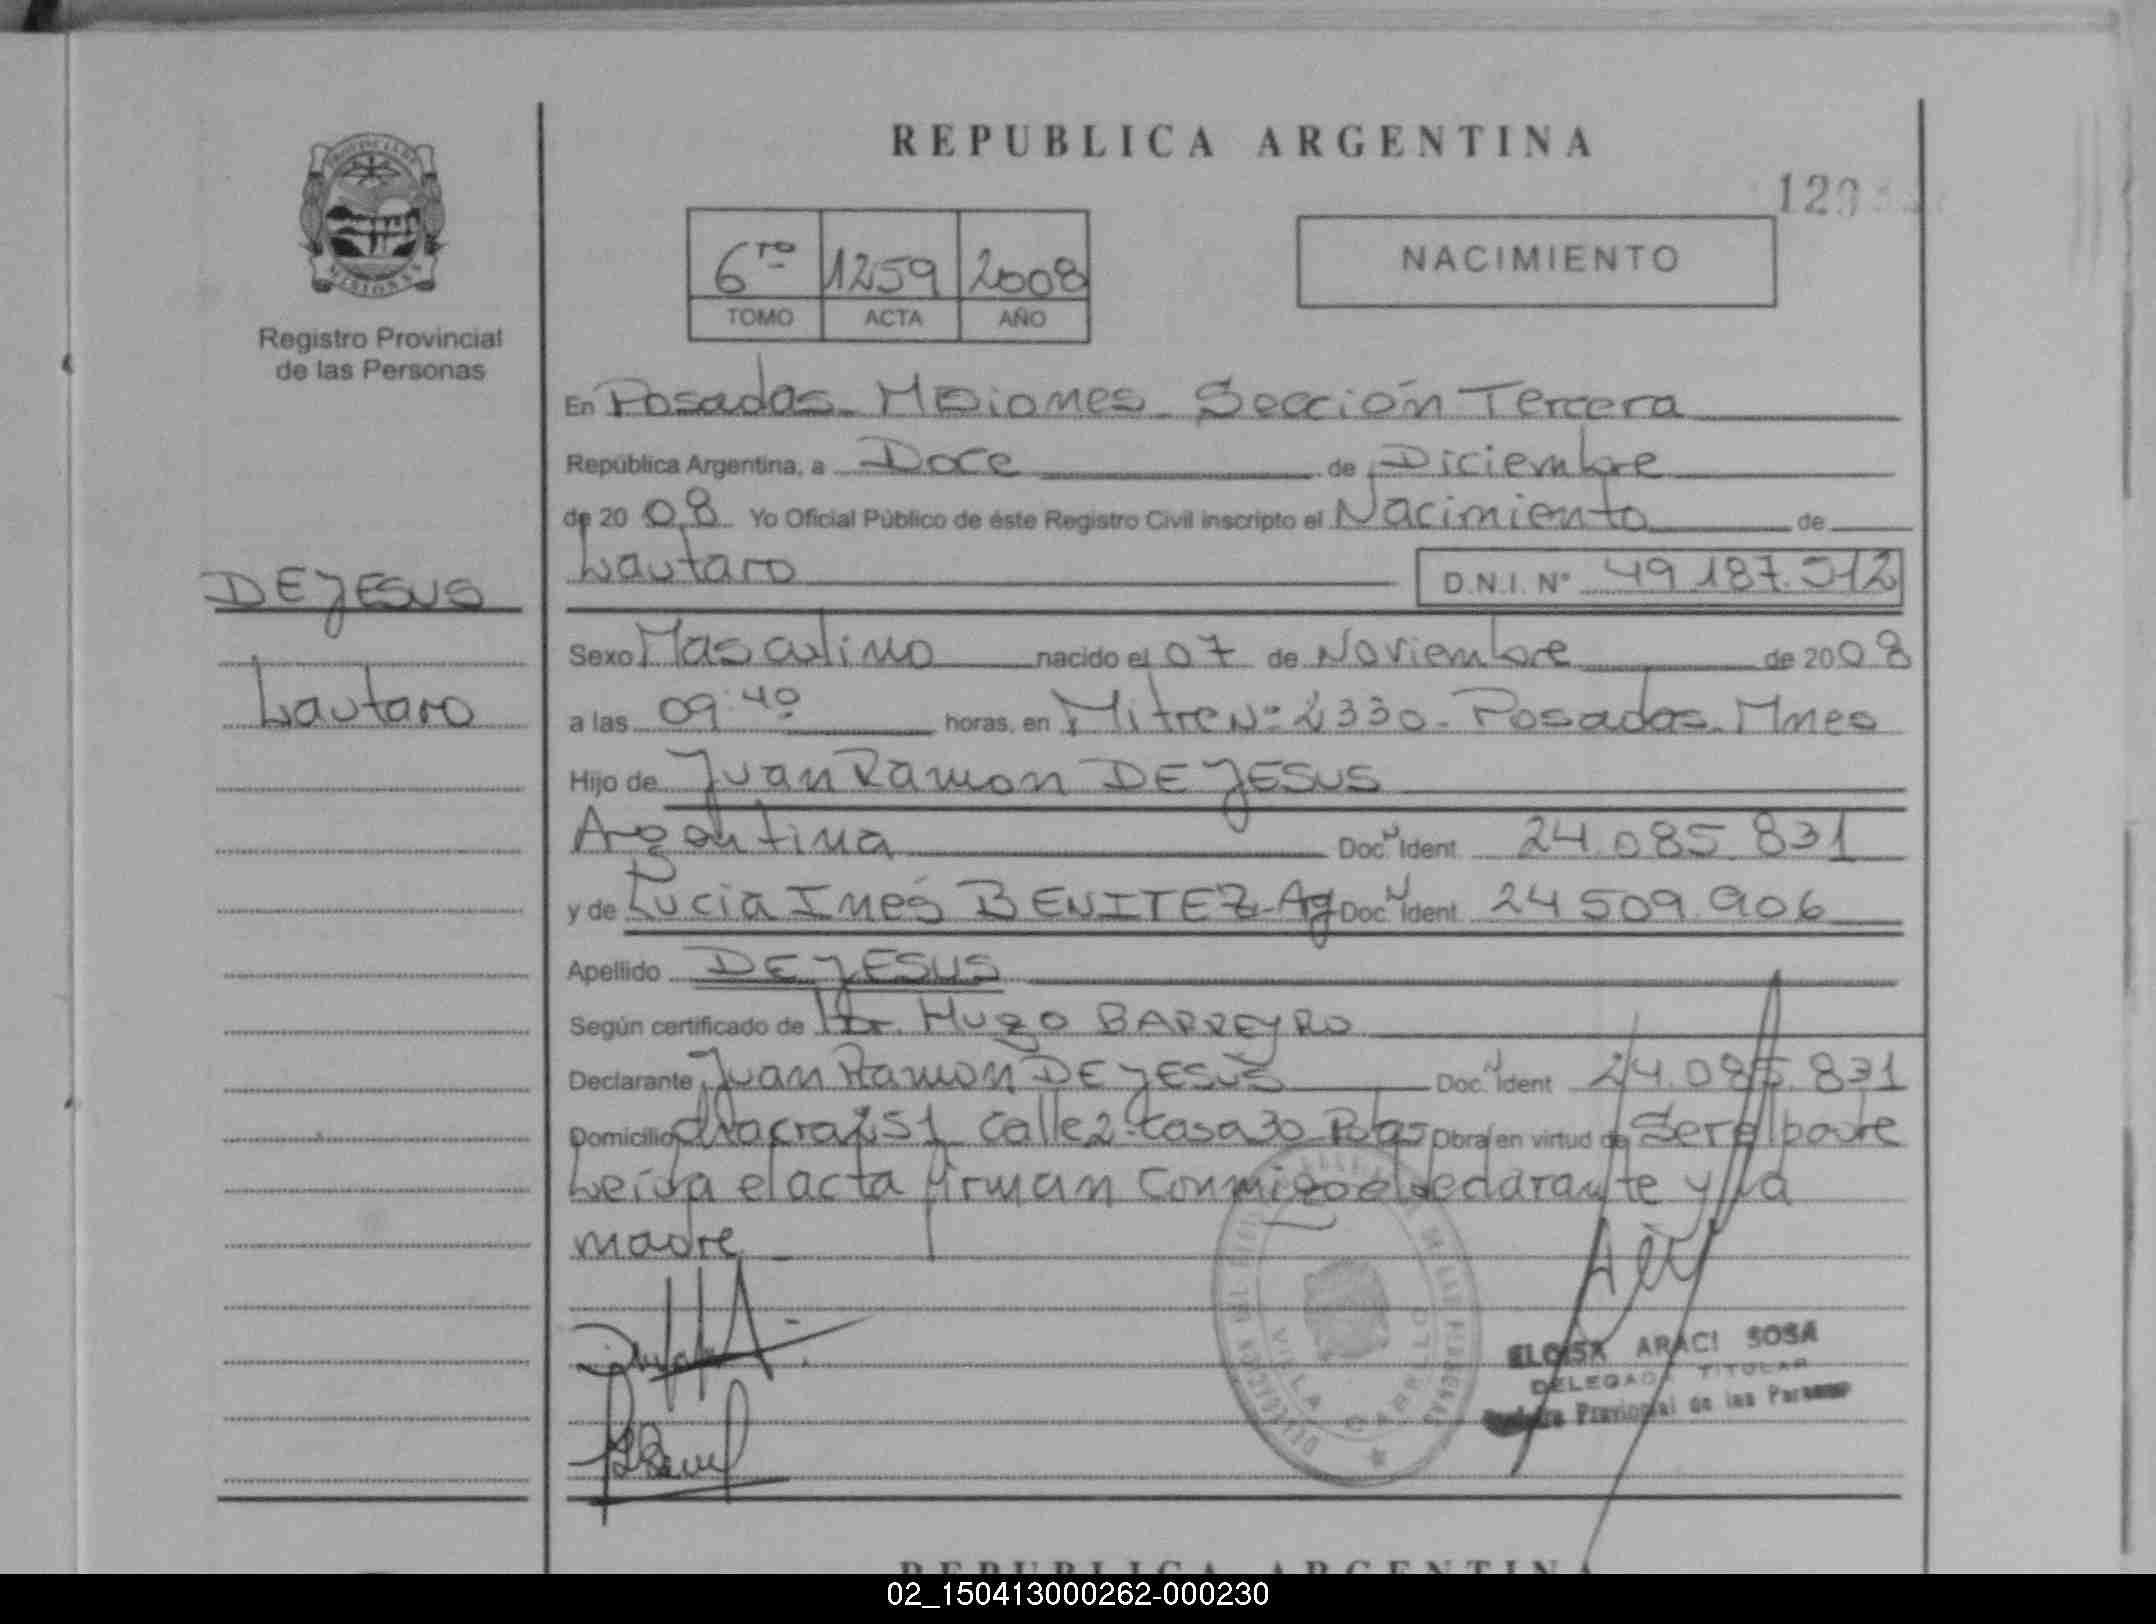 REPUBLICA ARGENTINA
PROVINCIA DE
MISIONES
Registro Provincial
de las Personas
6to 1259 2008
TOMO ACTA AÑO
NACIMIENTO
En Posadas - Misiones - Sección Tercera
República Argentina, a Doce de Diciembre
de 2008 Yo Oficial Público de éste Registro Civil inscripto el Nacimiento de
Lautaro D.N.I. Nº 49.187.512
DE JESUS
Lautaro
Sexo Masculino nacido el 07 de Noviembre de 2008
a las 09:40 horas, en Mitre Nº 2330 - Posadas - Mnes
Hijo de Juan Ramon DE JESUS
Argentina Doc. Ident. 24.085.831
y de Lucia Inés BENITEZ - Ag Doc. Ident. 24.509.906
Apellido DE JESUS
Según certificado de Dr. Hugo BARREYRO
Declarante Juan Ramon DE JESUS Doc. Ident. 24.085.831
Domicilio chacra 251 Calle 2 Casa 30 Pdas Obra en virtud de Ser el padre
Leida el acta firman Conmigo el declarante y la
madre
VILLA CABELLO
ELOISA ARACI SOSA
DELEGADA TITULAR
Registro Provincial de las Personas
REPUBLICA ARGENTINA
02_150413000262-000230